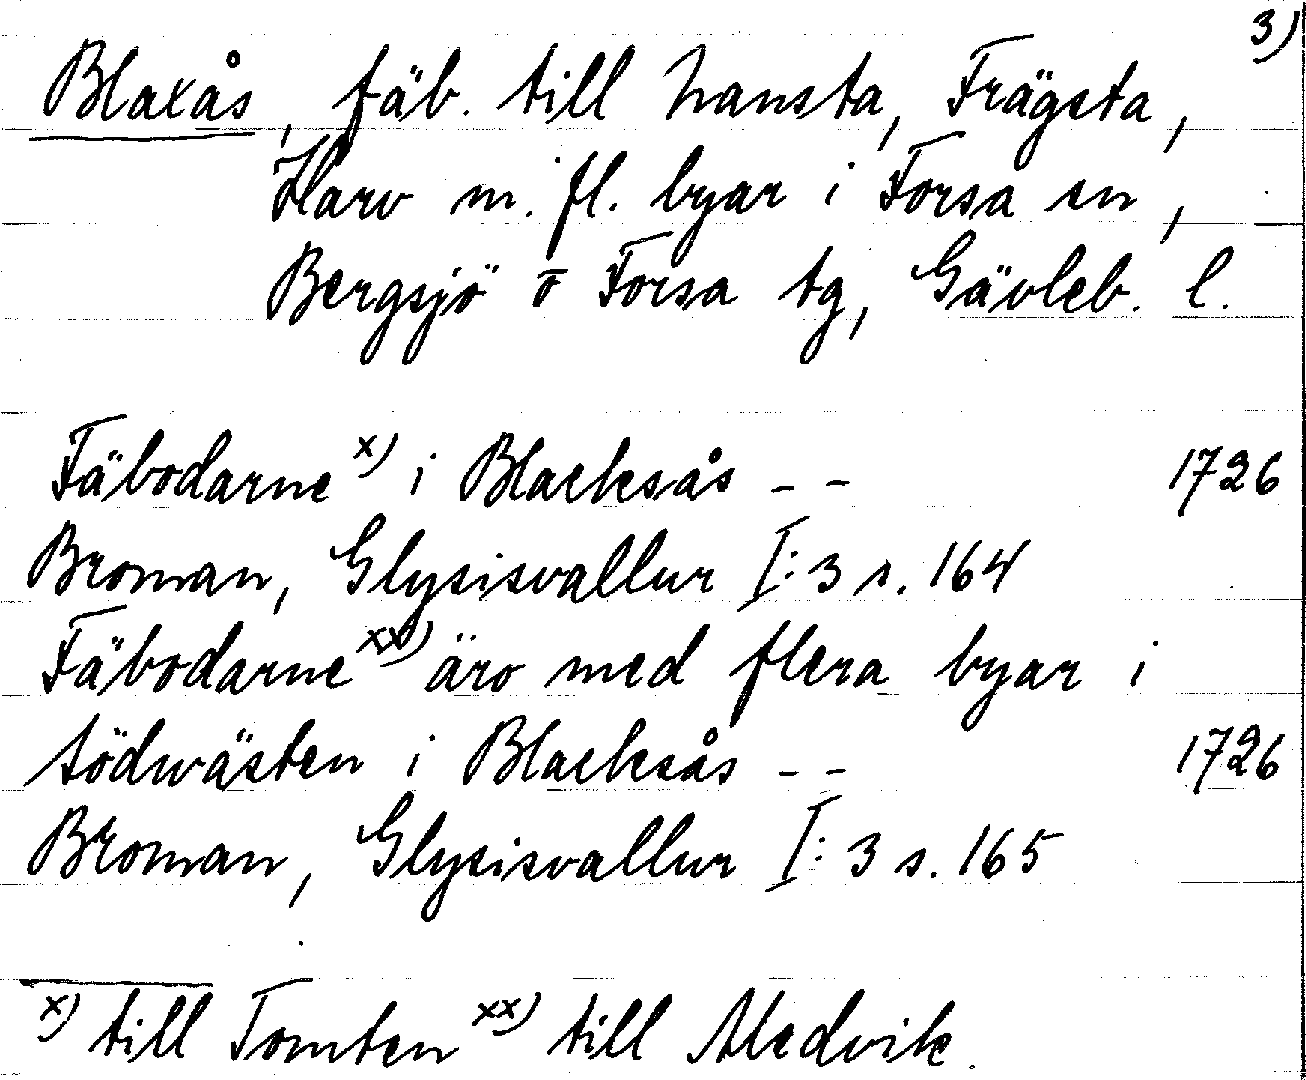 3)
Blaxås, fäb. till Hansta, Frägsta,
Harv m. fl. byar i Forsa sn,
Bergsjö o Forsa tg, Gävleb. l.
Fäbodarne x) i Blacksås - - 1726
Broman, Glysisvallur I:3 s. 164
Fäbodarne xx) äro med flera byar i
södwästen i Blacksås - - 1726
Broman, Glysisvallur I:3 s. 165
x) till Tomten xx) till Medvik.